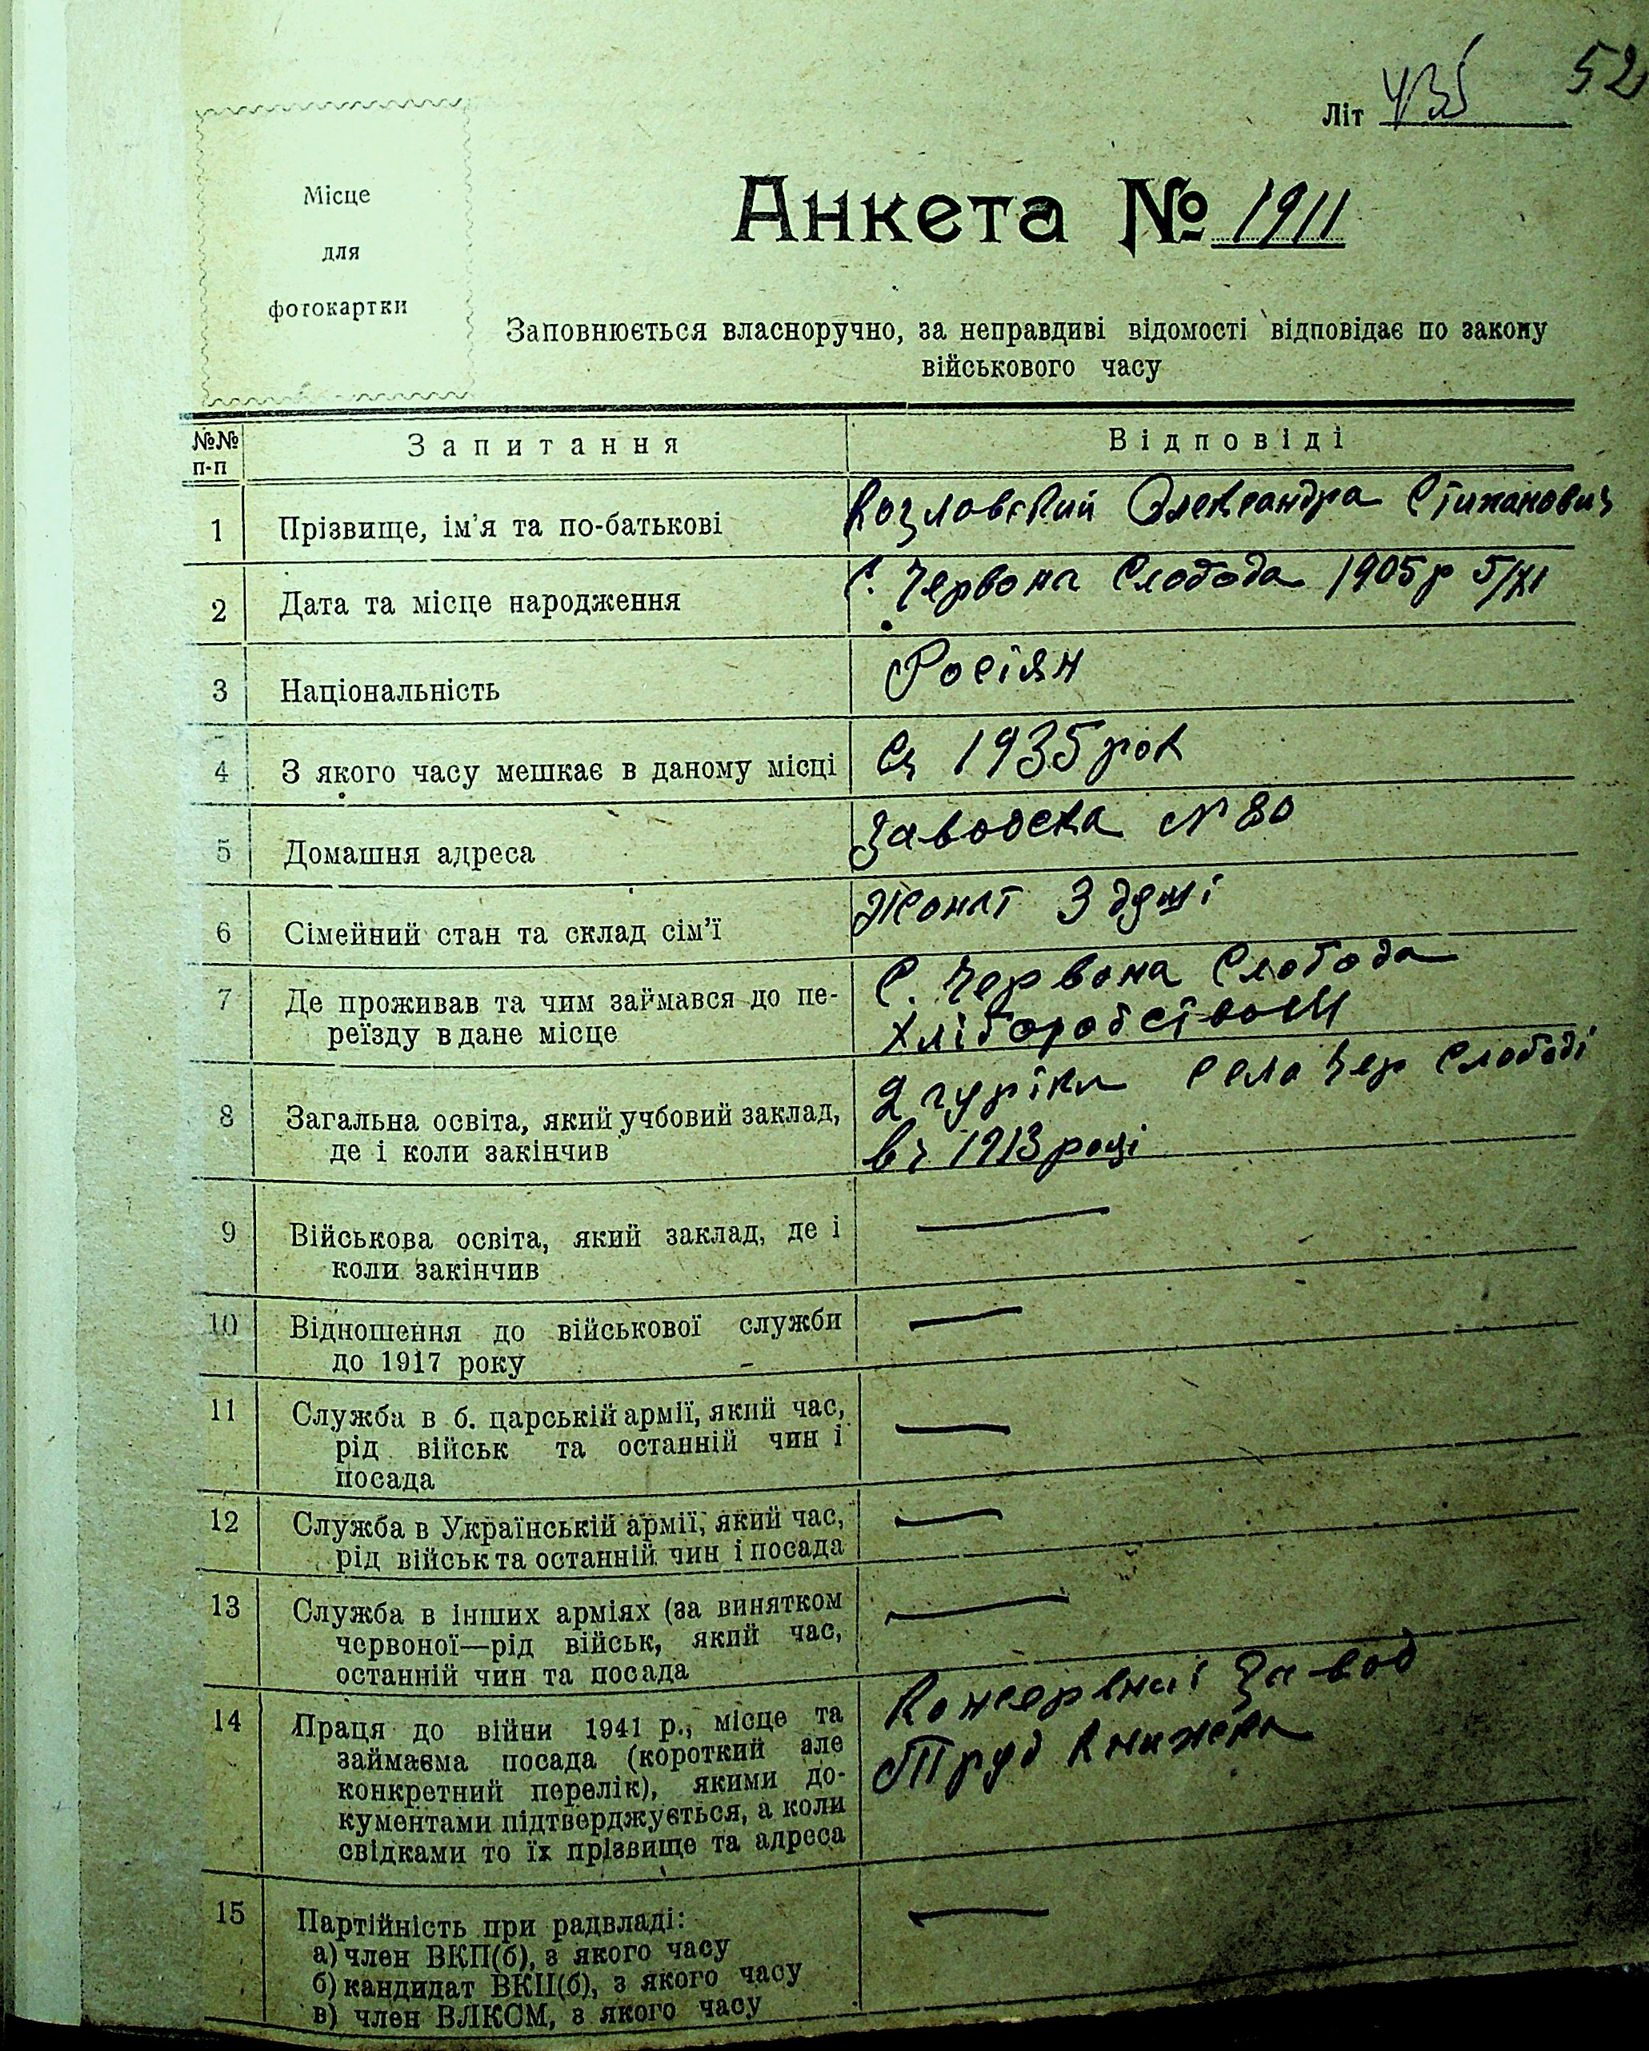 52
Літ 435
Місце
для
фотокартки
Анкета № 1911
Заповнюється власноручно, за неправдиві відомості відповідає по закону
військового часу
№№ п-п Запитання Відповіді
1 Прізвище, ім'я та по-батькові Козловский Олександра Стипанович
2 Дата та місце народження С. Червона Слобода 1905р 5/XI
3 Національність Росіян
4 З якого часу мешкає в даному місці 1935 рок
5 Домашня адреса Заводска № 80
6 Сімейний стан та склад сім'ї Жонат 3 душі
7 Де проживав та чим займався до пе- С. Червона Слобода
реїзду в дане місце Хліборобством
8 Загальна освіта, який учбовий заклад, 2 села Чер Слободі
де і коли закінчив 1913 році
9 Військова освіта, який заклад, де і —
коли закінчив
10 Відношення до військової служби —
до 1917 року
11 Служба в б. царській армії, який час, —
рід військ та останній чин і
посада
12 Служба в Українській армії, який час, —
рід військ та останній чин і посада
13 Служба в інших арміях (за винятком —
червоної—рід військ, який час,
останній чин та посада
14 Праця до війни 1941 р., місце та Консервнаі Завод
займаєма посада (короткий але Труд Книжека
конкретний перелік), якими до-
кументами підтверджується, а коли
свідками то їх прізвище та адреса
15 Партійність при радвладі: —
а) член ВКП(б), з якого часу
б) кандидат ВКП(б), з якого часу
в) член ВЛКСМ, з якого часу